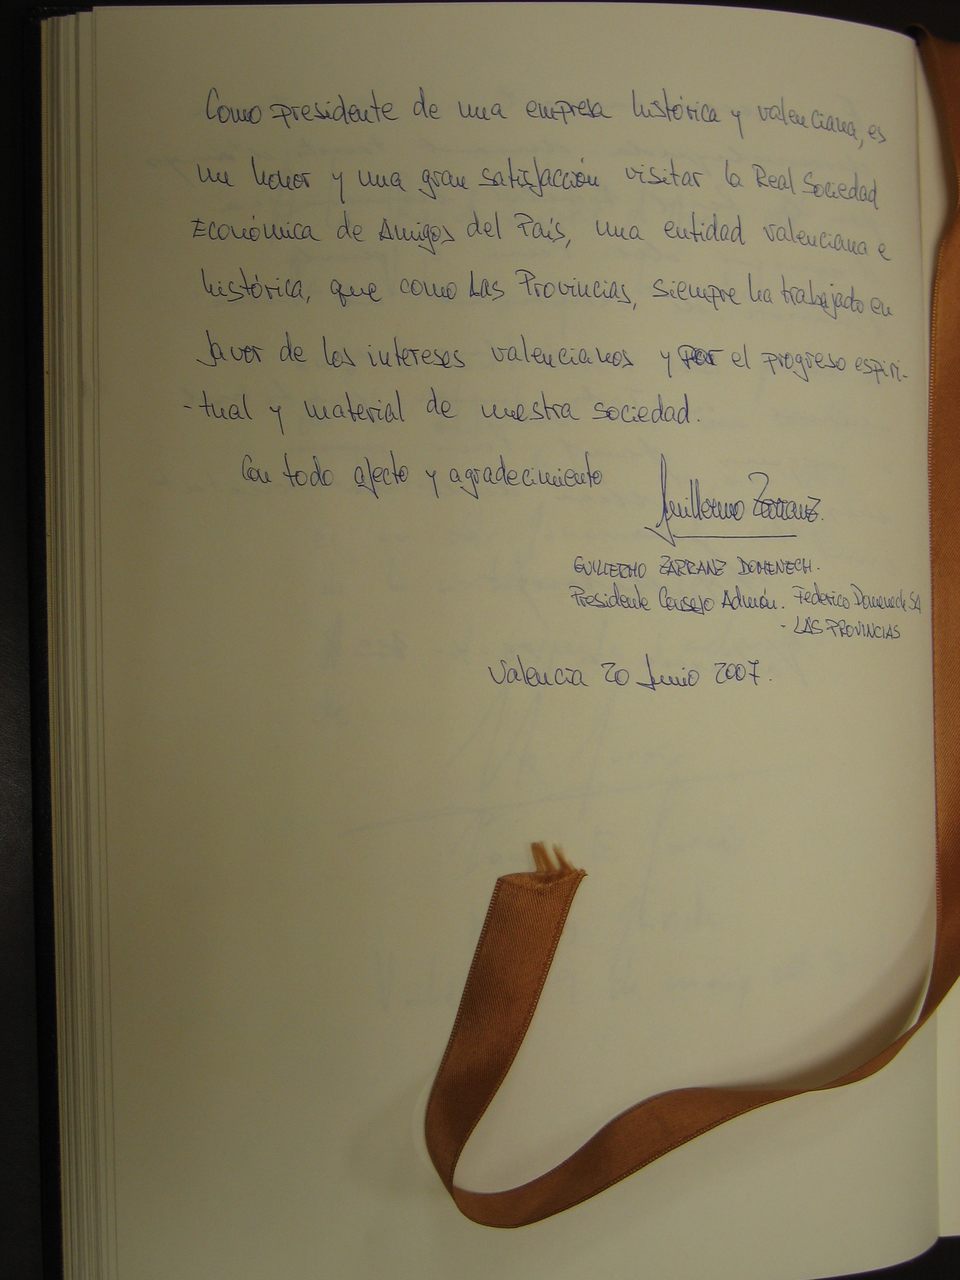 Como presidente de una empresa histórica y valenciana, es
un honor y una gran satisfacción visitar la Real Sociedad
Económica de Amigos del País, una entidad valenciana e
histórica, que como Las Provincias, siempre ha trabajado en
favor de los intereses valencianos y por el progreso espiri-
-tual y material de nuestra sociedad.
Con todo afecto y agradecimiento
Guillermo Zarranz
GUILLERMO ZARRANZ DOMENECH.
Presidente Consejo Admón. Federico Domenech SA
- LAS PROVINCIAS
Valencia 20 Junio 2007.